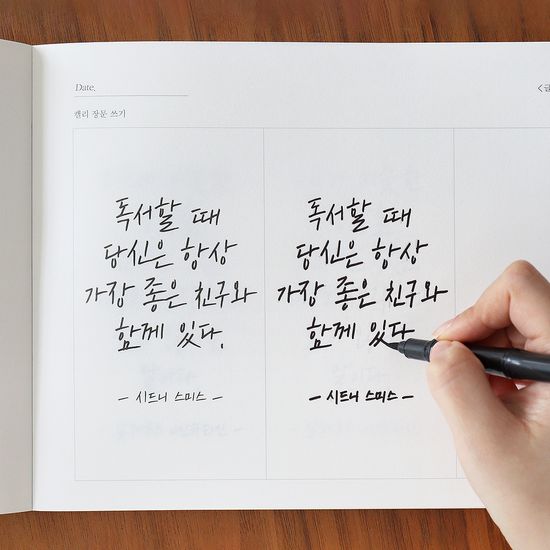 Date.
<글
캘리 장문 쓰기
독서할 때
당신은 항상
가장 좋은 친구와
함께 있다.
- 시드니 스미스 -
독서할 때
당신은 항상
가장 좋은 친구와
함께 있다
- 시드니 스미스 -